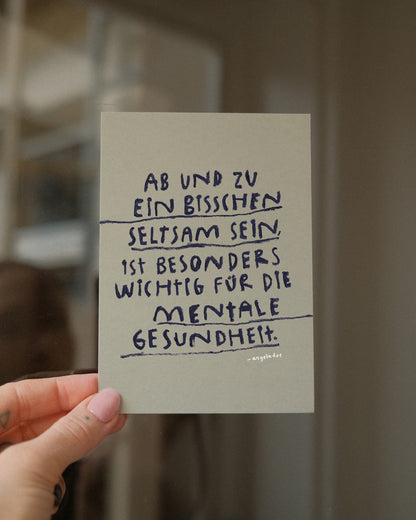 AB UND ZU
EIN BISSCHEN
SELTSAM SEIN,
IST BESONDERS
WICHTIG FÜR DIE
MENTALE
GESUNDHEIT.